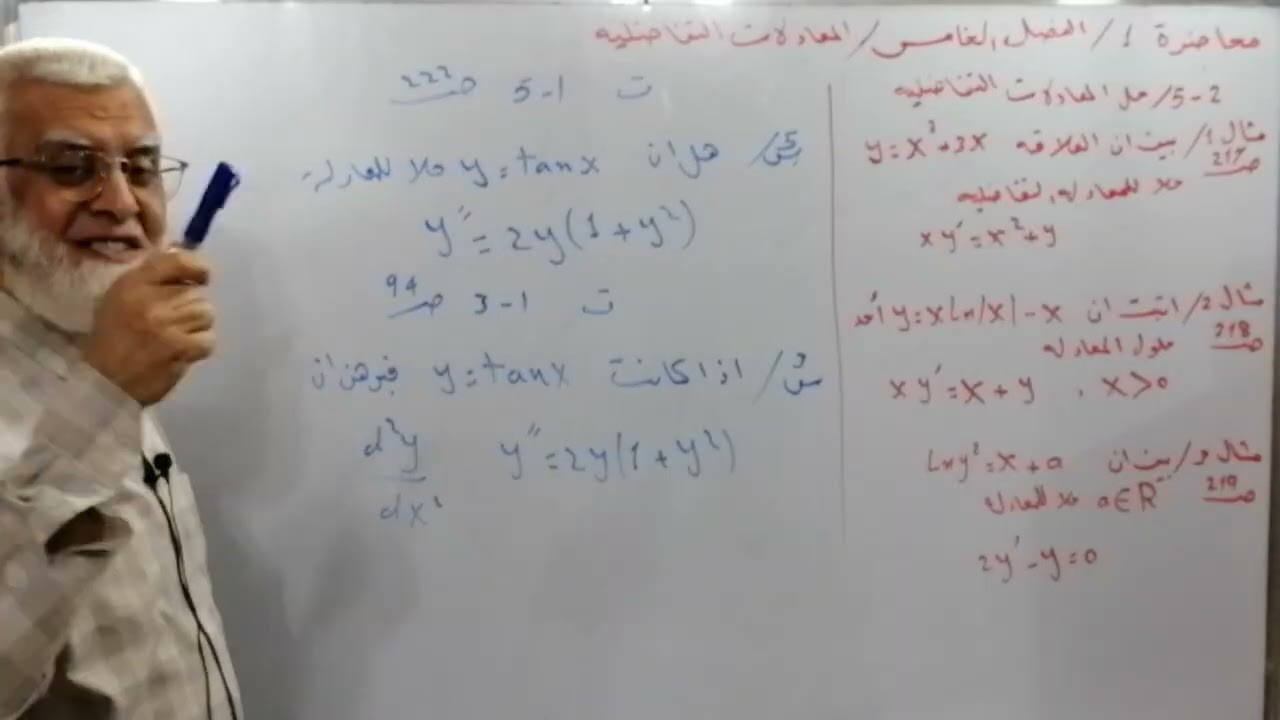 محاضرة 1 / الفصل الخامس / المعادلات التفاضليه
5-2 / حل المعادلات التفاضليه
مثال 1 / بين ان العلاقه y = x² + 3x
ص 217
حلا للمعادله التفاضليه
xy′ = x² + y
مثال 2 / اثبت ان y = x ln|x| - x أحد
ص 218
حلول المعادله
xy′ = x + y , x > 0
مثال 3 / بين ان ln y² = x + a
ص 219
a ∈ R حلا للمعادلة
2y′ - y = 0
ت 5-1 ص 222
س5 / هل ان y = tanx حلا للمعادلة
y″ = 2y(1 + y²)
ت 3-1 ص 94
س3 / اذا كانت y = tanx فبرهن ان
d²y/dx² y″ = 2y(1 + y²)